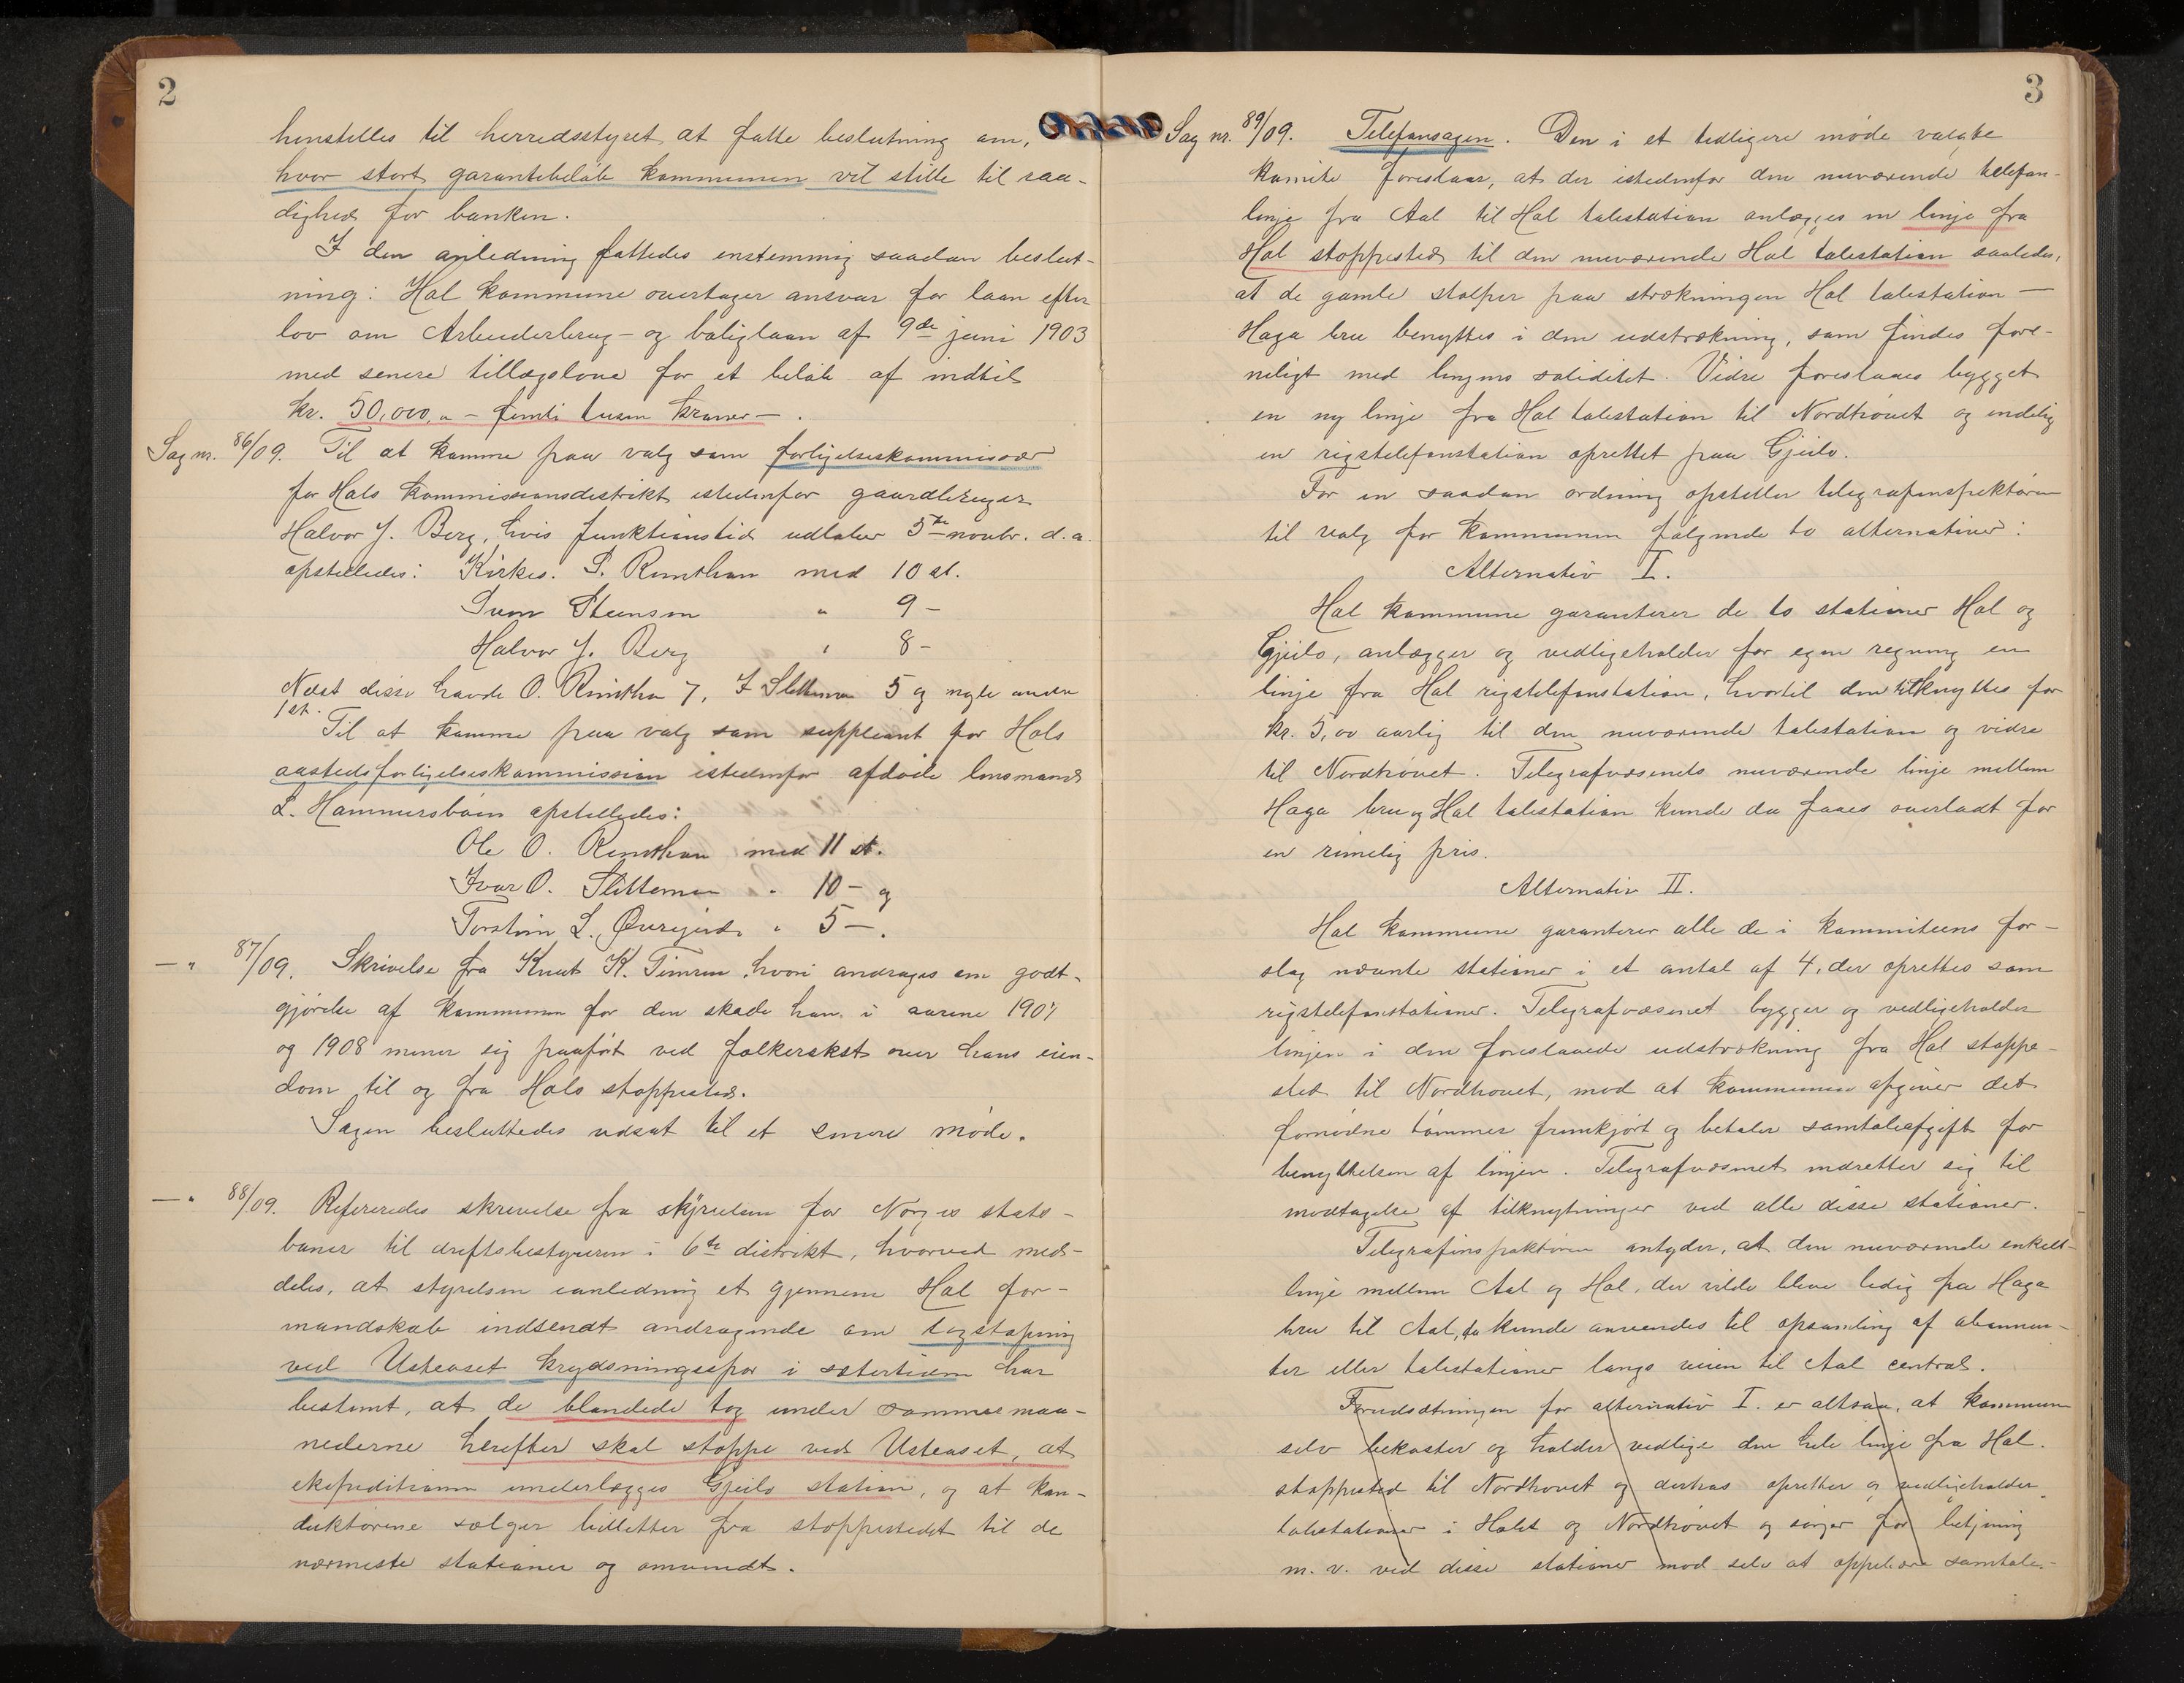 2
henstilles til herredsstyret at fatte beslutning om,
hvor stort garantibeløb kommunen vil stille til raa-
dighed for banken.
I den anledning fattedes enstemmig saadan beslut-
ning: Hol kommune overtager ansvar for laan efter
lov om Arbeiderbrug- og boliglaan af 9de juni 1903
med senere tillægslove for et beløb af indtil
kr. 50,000,00 - femti tusen kroner -.
Sag nr. 86/09. Til at komme paa valg som forligelseskommissær
for Hols kommissionsdistrikt istedenfor gaardbruger
Halvor J. Berg, hvis funktionstid udløber 5te novbr. d.a.
opstilledes: Kirkes. S. Rensthun med 10 st.
Sven Steensen " 9 -
Halvor J. Berg " 8 -
Næst disse havde O. Rensthun 7, I Slettemoen 5 og nogle andre
1 st.
Til at komme paa valg som suppleant for Hols
aastedsforligelseskommission istedenfor afdøde lensmand
L. Hammersbøen opstilledes:
Ole O. Rensthun med 11 st.
Ivar O. Slettemoen " 10 - og
Torstein L. Øvregjerde " 5 -.
— " 87/09. Skrivelse fra Knut K. Timren, hvori andrages om godt-
gjørelse af kommunen for den skade han i aarene 1907
og 1908 mener sig paaført ved folkerækst over hans eien-
dom til og fra Hols stoppested.
Sagen besluttedes udsat til et senere møde.
— " 88/09. Refereredes skrivelse fra styrelsen for Norges stats-
baner til driftsbestyreren i 6te distrikt, hvorved med-
deles, at styrelsen ianledning et gjennem Hol for-
mandskab indsendt andragende om togstopning
ved Ustaoset krydsningsspor i sætertiden har
bestemt, at de blandede tog under sommermaa-
nederne herefter skal stoppe ved Ustaoset, at
ekspeditionen underlægges Gjeilo station, og at kon-
duktørerne sælger billetter fra stoppestedet til de
nærmeste stationer og omvendt.
3
Sag nr. 89/09. Telefonsagen. Den i et tidligere møde valgte
komite foreslaar, at der istedenfor den nuværende telefon-
linje fra Aal til Hol talestation anlægges en linje fra
Hol stoppested til den nuværende Hol talestation saaledes,
at de gamle stolper paa strækningen Hol talestation —
Haga bru benyttes i den udstrækning, som findes fore-
neligt med linjens soliditet. Vidre foreslaaes bygget
en ny linje fra Hol talestation til Nordhovet og endelig
en rigstelefonstation oprettet paa Gjeilo.
For en saadan ordning opstiller telegrafinspektøren
til valg for kommunen følgende to alternativer:
Alternativ I.
Hol kommune garanterer de to stationer Hol og
Gjeilo, anlægger og vedligeholder for egen regning en
linje fra Hol rigstelefonstation, hvortil den tilknyttes for
kr. 5,00 aarlig til den nuværende talestation og vidre
til Nordhovet. Telegrafvæsenets nuværende linje mellem
Haga bru og Hol talestation kunde da faaes overladt for
en rimelig pris.
Alternativ II.
Hol kommune garanterer alle de i kommiteens for-
slag nævnte stationer i et antal af 4, der oprettes som
rigstelefonstationer. Telegrafvæsenet bygger og vedligeholder
linjen i den foreslaaede udstrækning fra Hol stoppe-
sted til Nordhovet, mod at kommunen afgiver det
fornødne tømmer fremkjørt og betaler samtaleafgift for
benyttelsen af linjen. Telegrafvæsenet indretter sig til
modtagelse af tilknytninger ved alle disse stationer.
Telegrafinspektøren antyder, at den nuværende enkelt-
linje mellem Aal og Hol, der vilde blive ledig fra Haga
bru til Aal, da kunde anvendes til opsamling af abonnen-
ter eller talestationer langs veien til Aal central.
Forudsætningen for alternativ I. er altsaa, at kommunen
selv bekoster og holder vedlige den hele linje fra Hol
stoppested til Nordhovet og derhos opretter og vedligeholder
talestationer i Holet og Nordhovet og sørger for betjening
m. v. ved disse stationer mod selv at oppebære samtale-